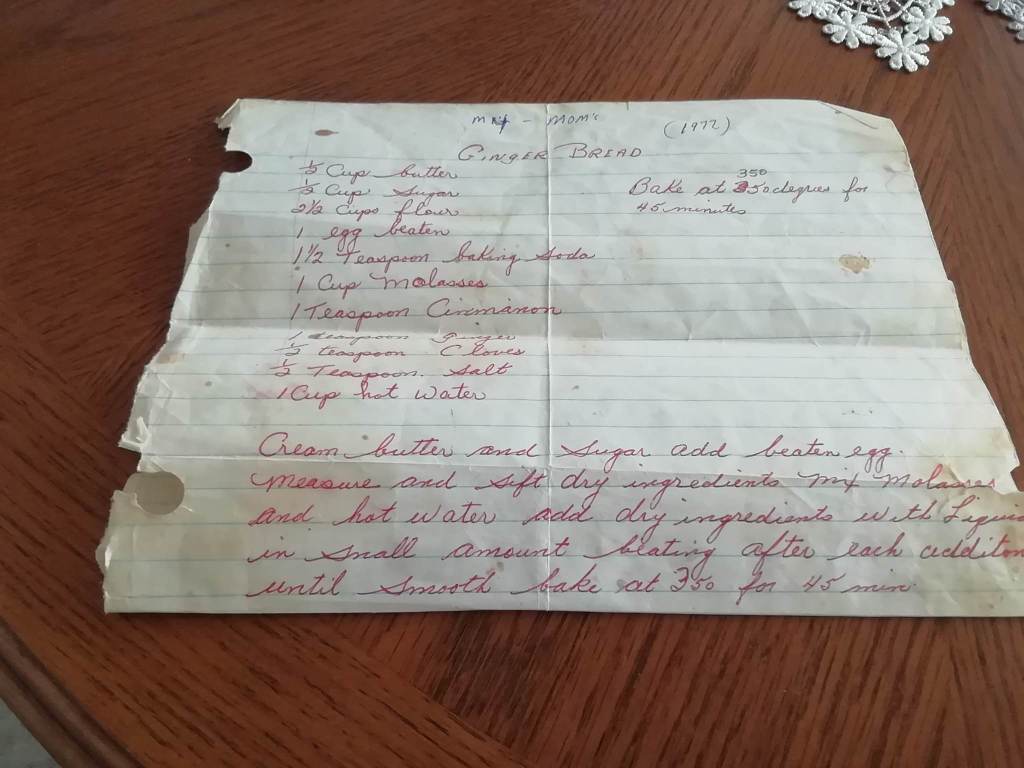 my - mom's (1972)
GINGER BREAD
1/2 Cup butter
1/2 Cup Sugar
350
Bake at 350 degrees for
45 minutes
2 1/2 Cups flour
1 egg beaten
1 1/2 Teaspoon baking Soda
1 Cup Molasses
1 Teaspoon Cinnmanon
1 teaspoon Ginger
1/2 teaspoon Cloves
1/2 Teaspoon. Salt
1 Cup hot water
Cream butter and Sugar add beaten egg.
Measure and sift dry ingredients mix molasses
and hot water add dry ingredients with Liquid
in small amount beating after each additon
until smooth bake at 350 for 45 min.